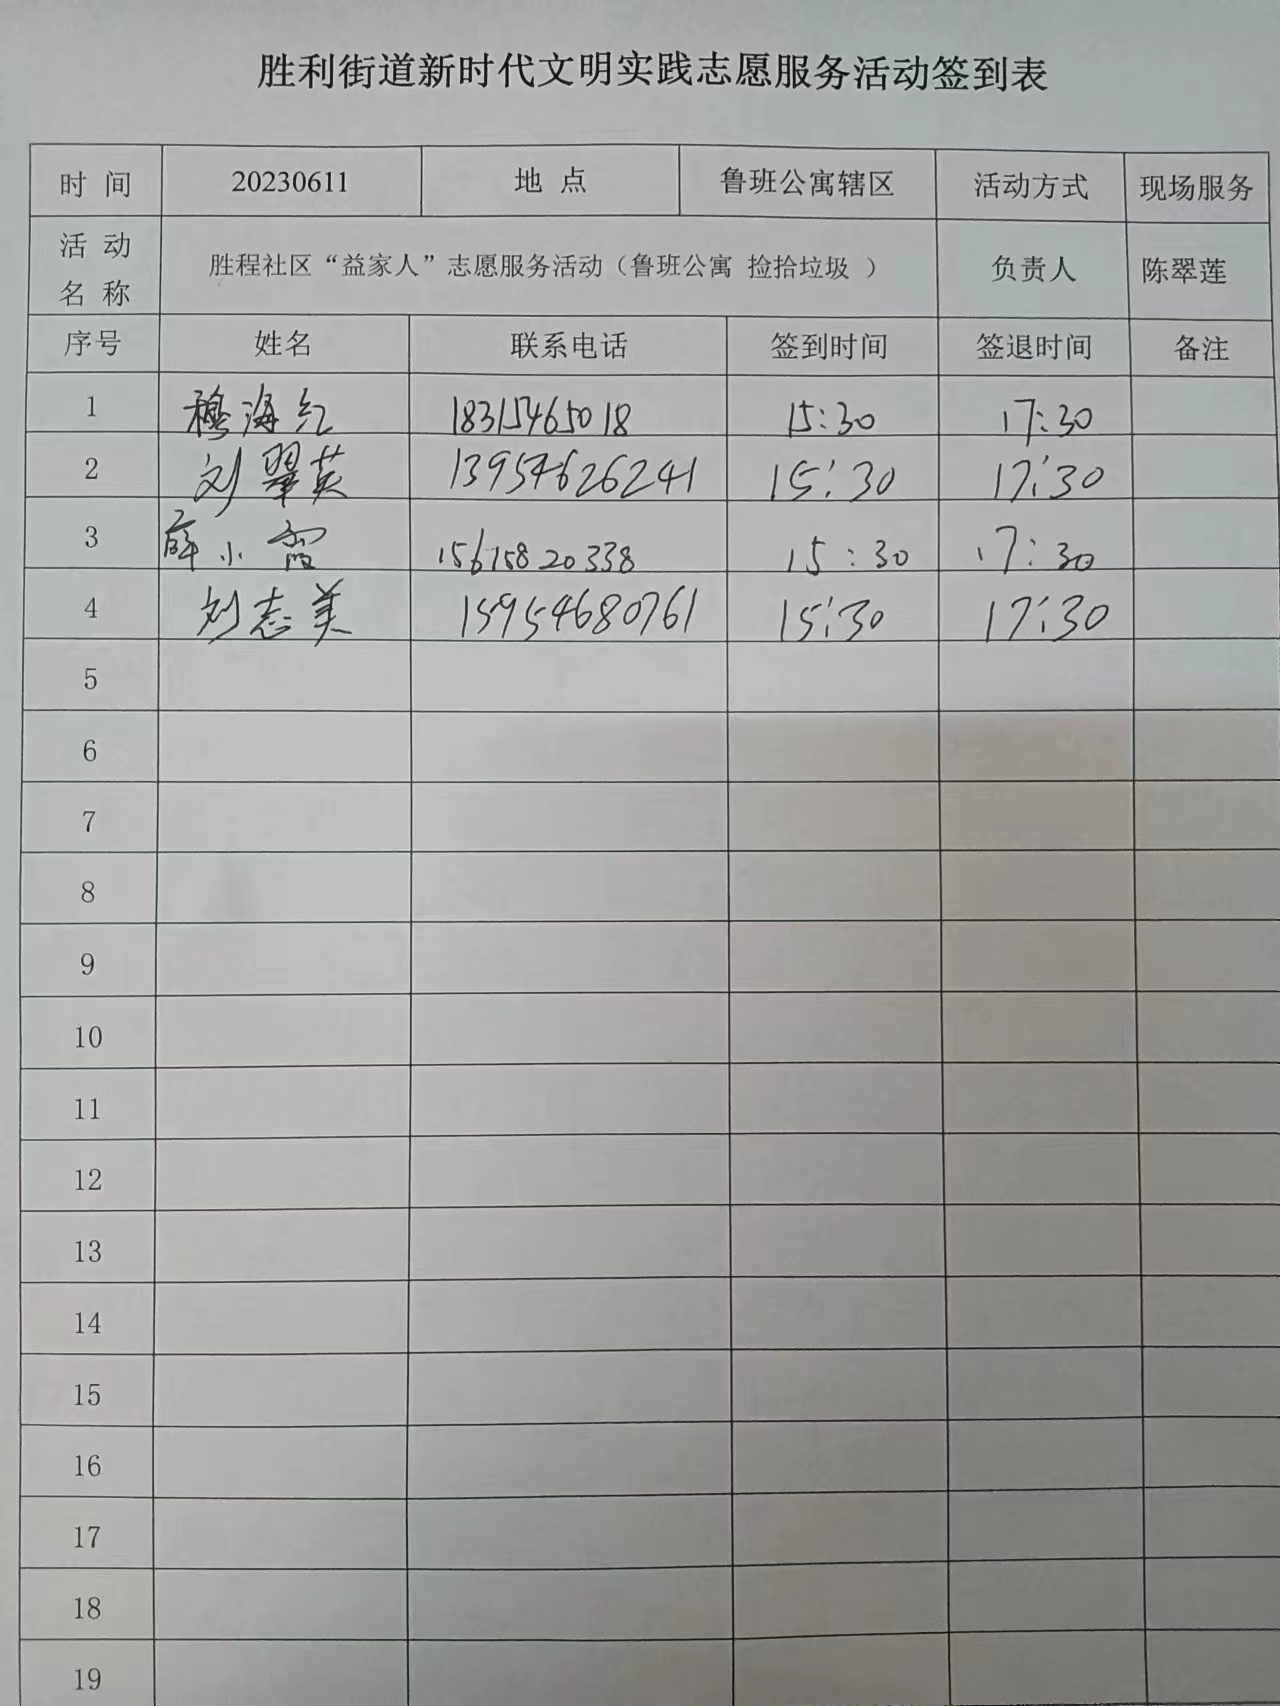 胜利街道新时代文明实践志愿服务活动签到表
时 间 20230611 地 点 鲁班公寓辖区 活动方式 现场服务
活 动 名 称 胜程社区“益家人”志愿服务活动（鲁班公寓 捡拾垃圾 ） 负责人 陈翠莲
序号 姓名 联系电话 签到时间 签退时间 备注
1 穆海红 18315465018 15:30 17:30
2 刘翠英 13954626241 15:30 17:30
3 薛小霞 15615820338 15:30 17:30
4 刘志美 15954680761 15:30 17:30
5
6
7
8
9
10
11
12
13
14
15
16
17
18
19